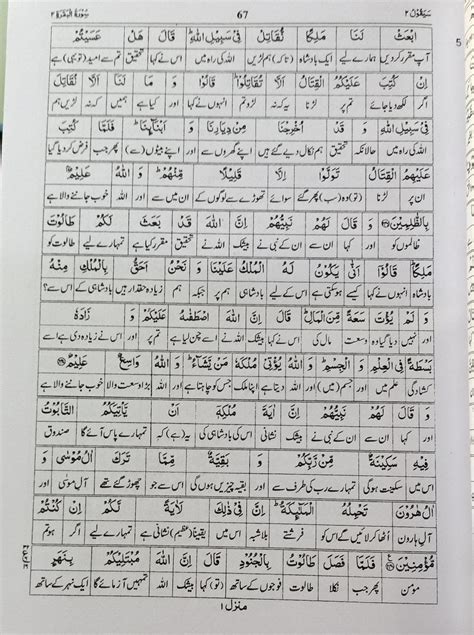 سَيَقُولُ ٢ 67 سُورَةُ الْبَقَرَةِ ٢
ابْعَثْ لَنَا مَلِكًا نُّقَاتِلْ فِيْ سَبِيْلِ اللّٰهِ ؕ قَالَ هَلْ عَسَيْتُمْ
آپ مقرر کردیں ہمارے لیے ایک بادشاہ (تاکہ) ہم لڑیں اللہ کی راہ میں اس نے کہا تحقیق تم سے امید (تو یہی) ہے
اِنْ كُتِبَ عَلَيْكُمُ الْقِتَالُ اَلَّا تُقَاتِلُوْا ؕ قَالُوْا وَ مَا لَنَآ اَلَّا نُقَاتِلَ
اگر لکھ دیا جائے تم پر لڑنا یہ کہ نہ لڑو تم انہوں نے کہا اور کیا ہے ہمیں کہ نہ لڑیں ہم
فِيْ سَبِيْلِ اللّٰهِ وَ قَدْ اُخْرِجْنَا مِنْ دِيَارِنَا وَ اَبْنَآئِنَا ؕ فَلَمَّا كُتِبَ
اللہ کی راہ میں حالانکہ تحقیق ہم نکال دیے گئے ہیں اپنے گھروں سے اور اپنے بیٹوں (سے) پھر جب فرض کر دیا گیا
عَلَيْهِمُ الْقِتَالُ تَوَلَّوْا اِلَّا قَلِيْلًا مِّنْهُمْ ؕ وَ اللّٰهُ عَلِيْمٌۢ
ان پر لڑنا (تو) وہ (سب) پھر گئے سوائے تھوڑے سے لوگوں کے ان میں سے اور اللہ خوب جاننے والا ہے
بِالظّٰلِمِيْنَ وَ قَالَ لَهُمْ نَبِيُّهُمْ اِنَّ اللّٰهَ قَدْ بَعَثَ لَكُمْ طَالُوْتَ
ظالموں کو اور کہا ان سے ان کے نبی نے بیشک اللہ نے تحقیق مقرر کیا ہے تمہارے لیے طالوت کو
مَلِكًا ؕ قَالُوْٓا اَنّٰى يَكُوْنُ لَهُ الْمُلْكُ عَلَيْنَا وَ نَحْنُ اَحَقُّ بِالْمُلْكِ مِنْهُ
بادشاہ انہوں نے کہا کیسے ہو سکتی ہے اس کے لیے بادشاہی ہم پر جبکہ ہم زیادہ حقدار ہیں بادشاہی کے اس سے؟
وَ لَمْ يُؤْتَ سَعَةً مِّنَ الْمَالِ ؕ قَالَ اِنَّ اللّٰهَ اصْطَفٰىهُ عَلَيْكُمْ وَ زَادَهٗ
اور نہیں دیا گیا وہ وسعت مال کی اس نے کہا بیشک اللہ نے اسے چن لیا ہے تم پر اور اس نے زیادہ دی ہے اسے
بَسْطَةً فِي الْعِلْمِ وَ الْجِسْمِ ؕ وَ اللّٰهُ يُؤْتِيْ مُلْكَهٗ مَنْ يَّشَآءُ ؕ وَ اللّٰهُ وَاسِعٌ عَلِيْمٌ
کشادگی علم میں اور جسم (میں) اور اللہ دیتا ہے اپنا ملک جس کو چاہتا ہے اور اللہ بڑا وسعت والا خوب جاننے والا ہے
وَ قَالَ لَهُمْ نَبِيُّهُمْ اِنَّ اٰيَةَ مُلْكِهٖٓ اَنْ يَّاْتِيَكُمُ التَّابُوْتُ
اور کہا ان سے ان کے نبی نے بیشک نشانی اس کی بادشاہی کی یہ (ہے) کہ تمہارے پاس آئے گا صندوق
فِيْهِ سَكِيْنَةٌ مِّنْ رَّبِّكُمْ وَ بَقِيَّةٌ مِّمَّا تَرَكَ اٰلُ مُوْسٰى وَ
اس میں سکینت ہو گی تمہارے رب کی طرف سے اور بقیہ چیزیں ہوں گی اس سے جو چھوڑ گئے آل موسیٰ اور
اٰلُ هٰرُوْنَ تَحْمِلُهُ الْمَلٰٓئِكَةُ ؕ اِنَّ فِيْ ذٰلِكَ لَاٰيَةً لَّكُمْ اِنْ كُنْتُمْ
آل ہارون اٹھا کر لائیں گے اس کو فرشتے بلاشبہ اس میں یقیناً (عظیم) نشانی ہے تمہارے لیے اگر ہو تم
مُّؤْمِنِيْنَ فَلَمَّا فَصَلَ طَالُوْتُ بِالْجُنُوْدِ ۙ قَالَ اِنَّ اللّٰهَ مُبْتَلِيْكُمْ بِنَهَرٍ
مومن پھر جب نکلا طالوت فوجوں کے ساتھ (تو) کہا بیشک اللہ تمہیں آزمائے گا ایک نہر کے ساتھ
منزل ١